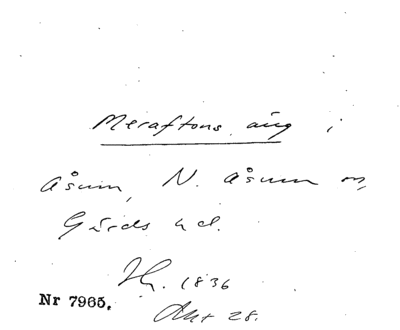 Meraftons äng i
Åsum, N. Åsum sn,
Gärds hd.
1836
Nr 7965.
Akt 28.